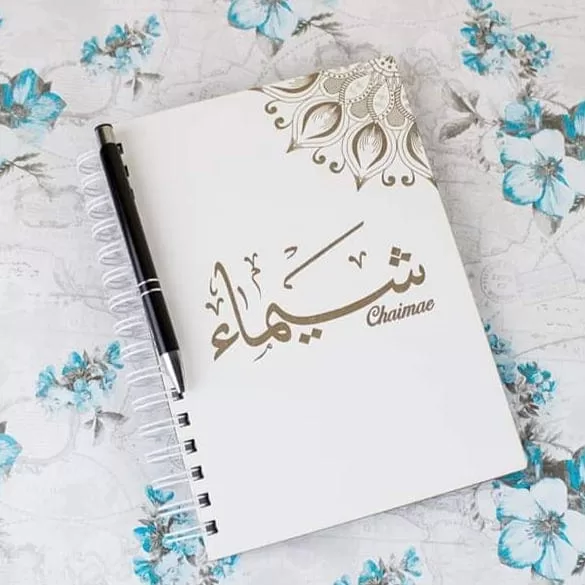 شيماء
Chaimae